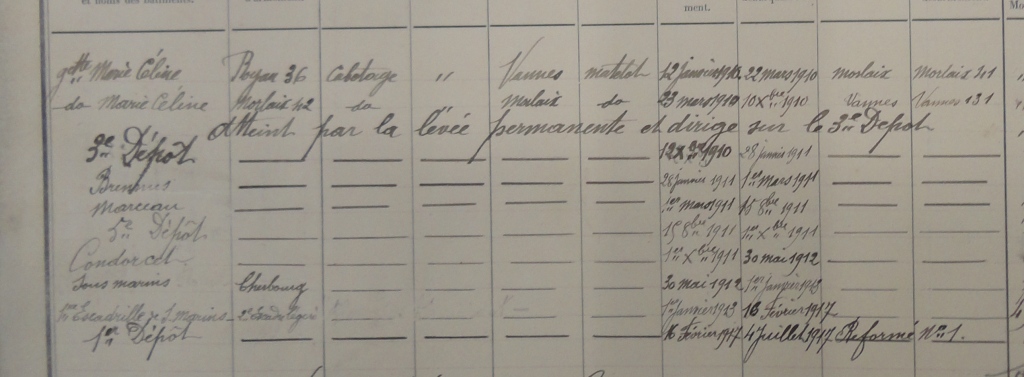 et noms des bâtiments. ment.
gtte Marie Céline Royan 36 Cabotage " Vannes matelot 12 janvier 1910 22 mars 1910 morlaix Morlaix 301
do Marie Céline Morlaix 42 do " morlaix do 23 mars 1910 10 Xbre 1910 Vannes Vannes 131
Atteint par la levée permanente et dirigé sur le 3e Dépot
3e Dépôt 12 Xbre 1910 28 janvier 1911
Brennus 28 janvier 1911 1er Mars 1911
Marceau 1er mars 1911 15 8bre 1911
5e Dépôt 15 8bre 1911 1er Xbre 1911
Condorcet 1er Xbre 1911 30 mai 1912
Sous marins Cherbourg 30 mai 1912 1er janvier 1913
1re Escadrille de S. marins 1er janvier 1913 16 Février 1917
1er Dépôt 16 Février 1917 4 juillet 1917 Reformé No 1.